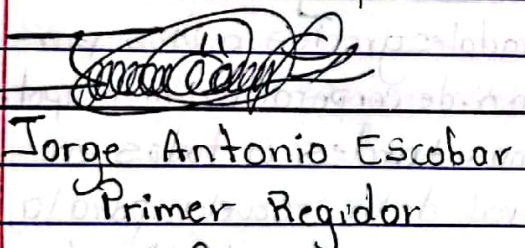 Jorge Antonio Escobar
Primer Regidor